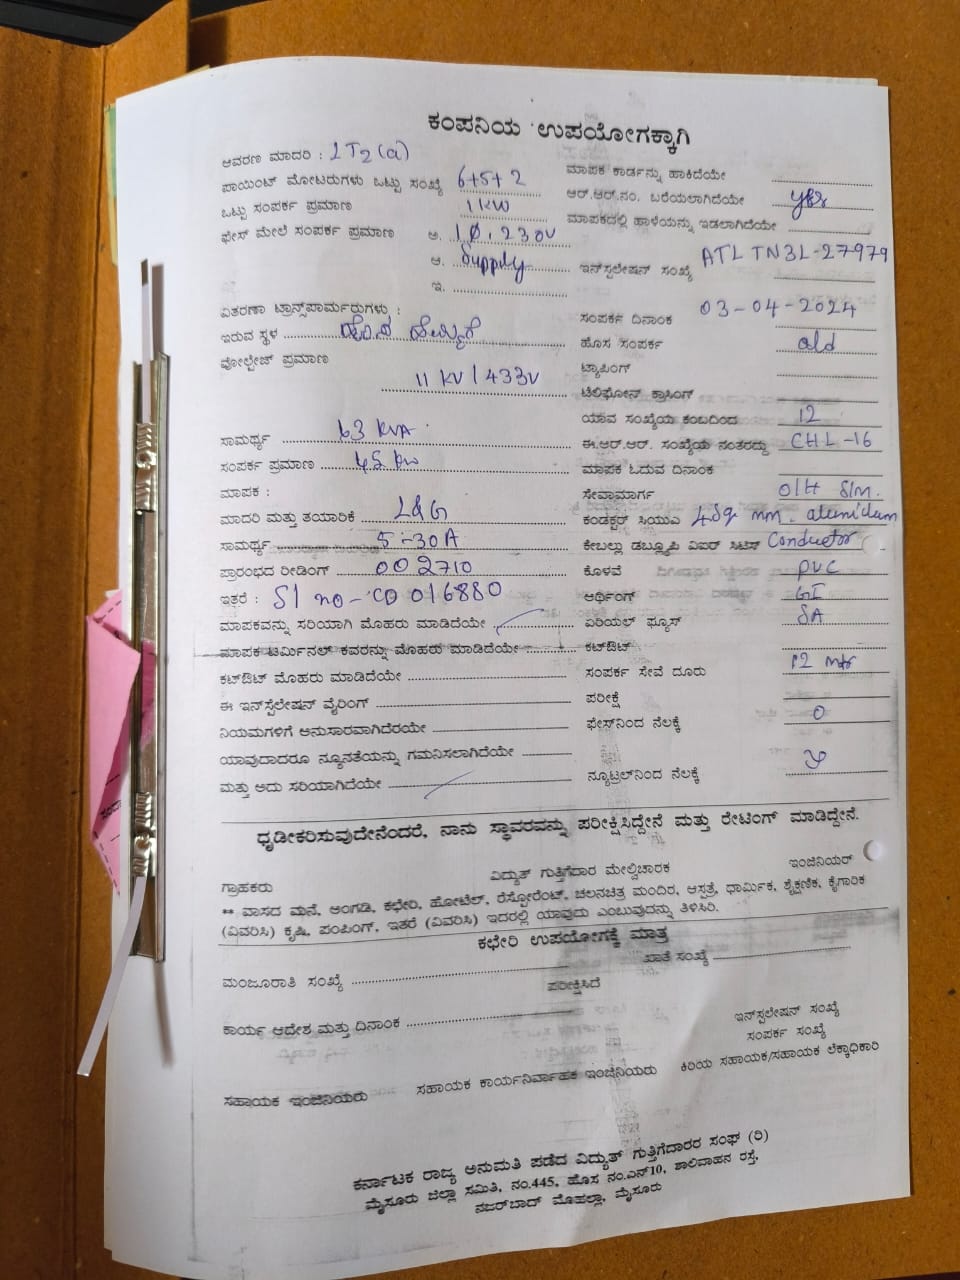 ಕಂಪನಿಯ ಉಪಯೋಗಕ್ಕಾಗಿ
ಆವರಣ ಮಾದರಿ : LT2(a)
ಮಾಪಕ ಕಾರ್ಡನ್ನು ಹಾಕಿದೆಯೇ
ಪಾಯಿಂಟ್ ಮೋಟರುಗಳು ಒಟ್ಟು ಸಂಖ್ಯೆ 6+5+2
ಆರ್.ಆರ್.ನಂ. ಬರೆಯಲಾಗಿದೆಯೇ yes
ಒಟ್ಟು ಸಂಪರ್ಕ ಪ್ರಮಾಣ 1 KW
ಮಾಪಕದಲ್ಲಿ ಹಾಳೆಯನ್ನು ಇಡಲಾಗಿದೆಯೇ
ಫೇಸ್ ಮೇಲೆ ಸಂಪರ್ಕ ಪ್ರಮಾಣ ಅ. 1Ø, 230V
ಆ. Supply
ಇನ್‌ಸ್ಟಲೇಷನ್ ಸಂಖ್ಯೆ ATL TN3L-27979
ಇ.
ವಿತರಣಾ ಟ್ರಾನ್ಸ್‌ಪಾರ್ಮರುಗಳು :
ಸಂಪರ್ಕ ದಿನಾಂಕ 03-04-2024
ಇರುವ ಸ್ಥಳ
ಹೊಸ ಸಂಪರ್ಕ old
ವೋಲ್ಟೇಜ್ ಪ್ರಮಾಣ 11 KV / 433V
ಟ್ಯಾಪಿಂಗ್
ಟೆಲಿಫೋನ್ ಕ್ರಾಸಿಂಗ್
ಯಾವ ಸಂಖ್ಯೆಯ ಕಂಬದಿಂದ 12
ಸಾಮರ್ಥ್ಯ 63 KVA
ಈ.ಆರ್.ಆರ್. ಸಂಖ್ಯೆಯ ನಂತರದ್ದು CHL-16
ಸಂಪರ್ಕ ಪ್ರಮಾಣ 45 KW
ಮಾಪಕ ಓದುವ ದಿನಾಂಕ
ಮಾಪಕ :
ಸೇವಾಮಾರ್ಗ O/H S/M.
ಮಾದರಿ ಮತ್ತು ತಯಾರಿಕೆ L&G
ಕಂಡಕ್ಟರ್ ಸಿಯುಎ 4 sq mm. aluminium
ಸಾಮರ್ಥ್ಯ 5-30A
ಕೇಬಲ್ಲು ಡಬ್ಲ್ಯೂಪಿ ವಿಐರ್ ಸಿಟಿಸ್ Conductor
ಪ್ರಾರಂಭದ ರೀಡಿಂಗ್ 002710
ಕೊಳವೆ PVC
ಇತರೆ : Sl no - CO 016880
ಆರ್ಥಿಂಗ್ GI
ಮಾಪಕವನ್ನು ಸರಿಯಾಗಿ ಮೊಹರು ಮಾಡಿದೆಯೇ
ಏರಿಯಲ್ ಫ್ಯೂಸ್ 5A
ಮಾಪಕ ಟರ್ಮಿನಲ್ ಕವರನ್ನು ಮೊಹರು ಮಾಡಿದೆಯೇ
ಕಟ್‌ಔಟ್
ಕಟ್‌ಔಟ್ ಮೊಹರು ಮಾಡಿದೆಯೇ
ಸಂಪರ್ಕ ಸೇವೆ ದೂರು 12 mtr
ಈ ಇನ್‌ಸ್ಟೆಲೇಷನ್ ವೈರಿಂಗ್
ಪರೀಕ್ಷೆ
ನಿಯಮಗಳಿಗೆ ಅನುಸಾರವಾಗಿದೆರಯೇ
ಫೇಸ್‌ನಿಂದ ನೆಲಕ್ಕೆ 0
ಯಾವುದಾದರೂ ನ್ಯೂನತೆಯನ್ನು ಗಮನಿಸಲಾಗಿದೆಯೇ
ಮತ್ತು ಅದು ಸರಿಯಾಗಿದೆಯೇ
ನ್ಯೂಟ್ರಲ್‌ನಿಂದ ನೆಲಕ್ಕೆ
ಧೃಡೀಕರಿಸುವುದೇನೆಂದರೆ, ನಾನು ಸ್ಥಾವರವನ್ನು ಪರೀಕ್ಷಿಸಿದ್ದೇನೆ ಮತ್ತು ರೇಟಿಂಗ್ ಮಾಡಿದ್ದೇನೆ.
ಗ್ರಾಹಕರು ವಿದ್ಯುತ್ ಗುತ್ತಿಗೆದಾರ ಮೇಲ್ವಿಚಾರಕ ಇಂಜಿನಿಯರ್
** ವಾಸದ ಮನೆ, ಅಂಗಡಿ, ಕಛೇರಿ, ಹೋಟೆಲ್, ರೆಸ್ಟೋರೆಂಟ್, ಚಲನಚಿತ್ರ ಮಂದಿರ, ಆಸ್ಪತ್ರೆ, ಧಾರ್ಮಿಕ, ಶೈಕ್ಷಣಿಕ, ಕೈಗಾರಿಕ
(ವಿವರಿಸಿ) ಕೃಷಿ, ಪಂಪಿಂಗ್, ಇತರೆ (ವಿವರಿಸಿ) ಇದರಲ್ಲಿ ಯಾವುದು ಎಂಬುವುದನ್ನು ತಿಳಿಸಿರಿ.
ಕಛೇರಿ ಉಪಯೋಗಕ್ಕೆ ಮಾತ್ರ
ಮಂಜೂರಾತಿ ಸಂಖ್ಯೆ ಖಾತೆ ಸಂಖ್ಯೆ
ಪರೀಕ್ಷಿಸಿದೆ
ಕಾರ್ಯ ಆದೇಶ ಮತ್ತು ದಿನಾಂಕ
ಇನ್‌ಸ್ಟಲೇಷನ್ ಸಂಖ್ಯೆ
ಸಂಪರ್ಕ ಸಂಖ್ಯೆ
ಸಹಾಯಕ ಇಂಜಿನಿಯರು ಸಹಾಯಕ ಕಾರ್ಯನಿರ್ವಾಹಕ ಇಂಜಿನಿಯರು ಕಿರಿಯ ಸಹಾಯಕ/ಸಹಾಯಕ ಲೆಕ್ಕಾಧಿಕಾರಿ
ಕರ್ನಾಟಕ ರಾಜ್ಯ ಅನುಮತಿ ಪಡೆದ ವಿದ್ಯುತ್ ಗುತ್ತಿಗೆದಾರರ ಸಂಘ (ರಿ)
ಮೈಸೂರು ಜಿಲ್ಲಾ ಸಮಿತಿ, ನಂ.445, ಹೊಸ ನಂ.ಎನ್10, ಶಾಲಿವಾಹನ ರಸ್ತೆ,
ನಜರ್‌ಬಾದ್ ಮೊಹಲ್ಲಾ, ಮೈಸೂರು